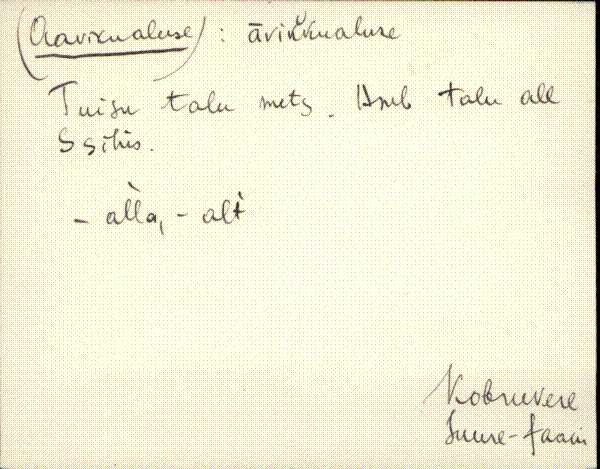 (Aavikualuse) : āvik̆kualuse
Tuisu talu mets. Amb talu all
S sihis.
- àlla, - alt
Kobruvere
Suure-Jaani